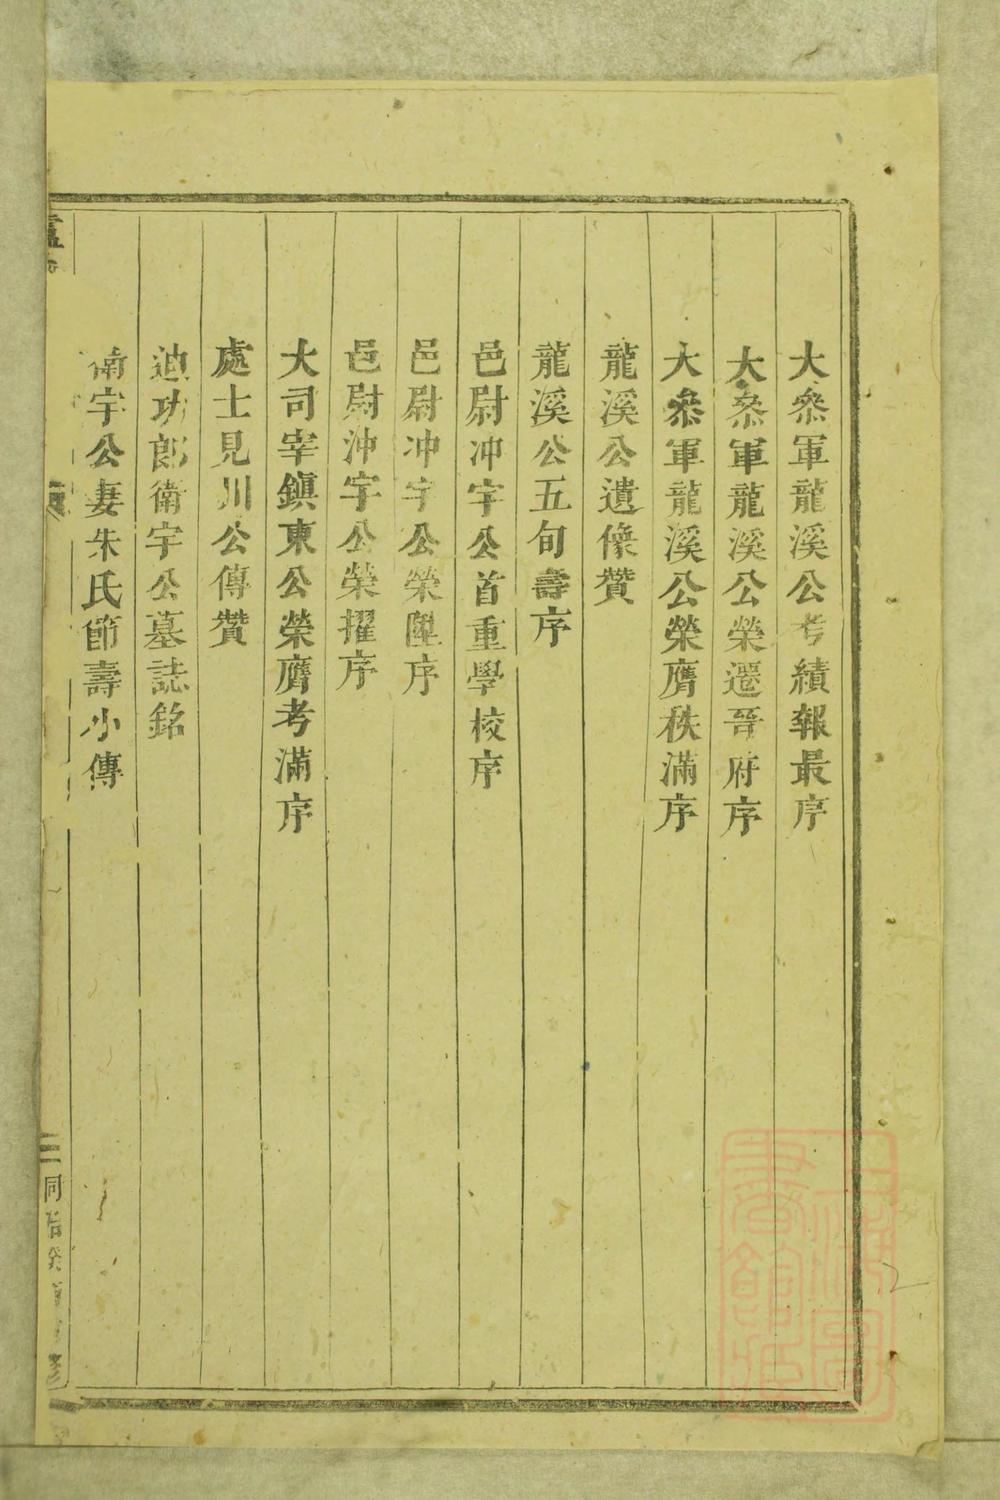 大叅軍龍溪公考績報最序
大叅軍龍溪公榮遷晉府序
大叅軍龍溪公榮膺秩滿序
龍溪公遺像贊
龍溪公五旬壽序
邑尉冲宇公首重學校序
邑尉冲宇公榮陞序
邑尉沖宇公榮擢序
大司宰鎮東公榮膺考滿序
處士見川公傳贊
迪功郎衛宇公墓誌銘
衛宇公妻朱氏節壽小傳
三 同治癸
上海圖書館藏
2